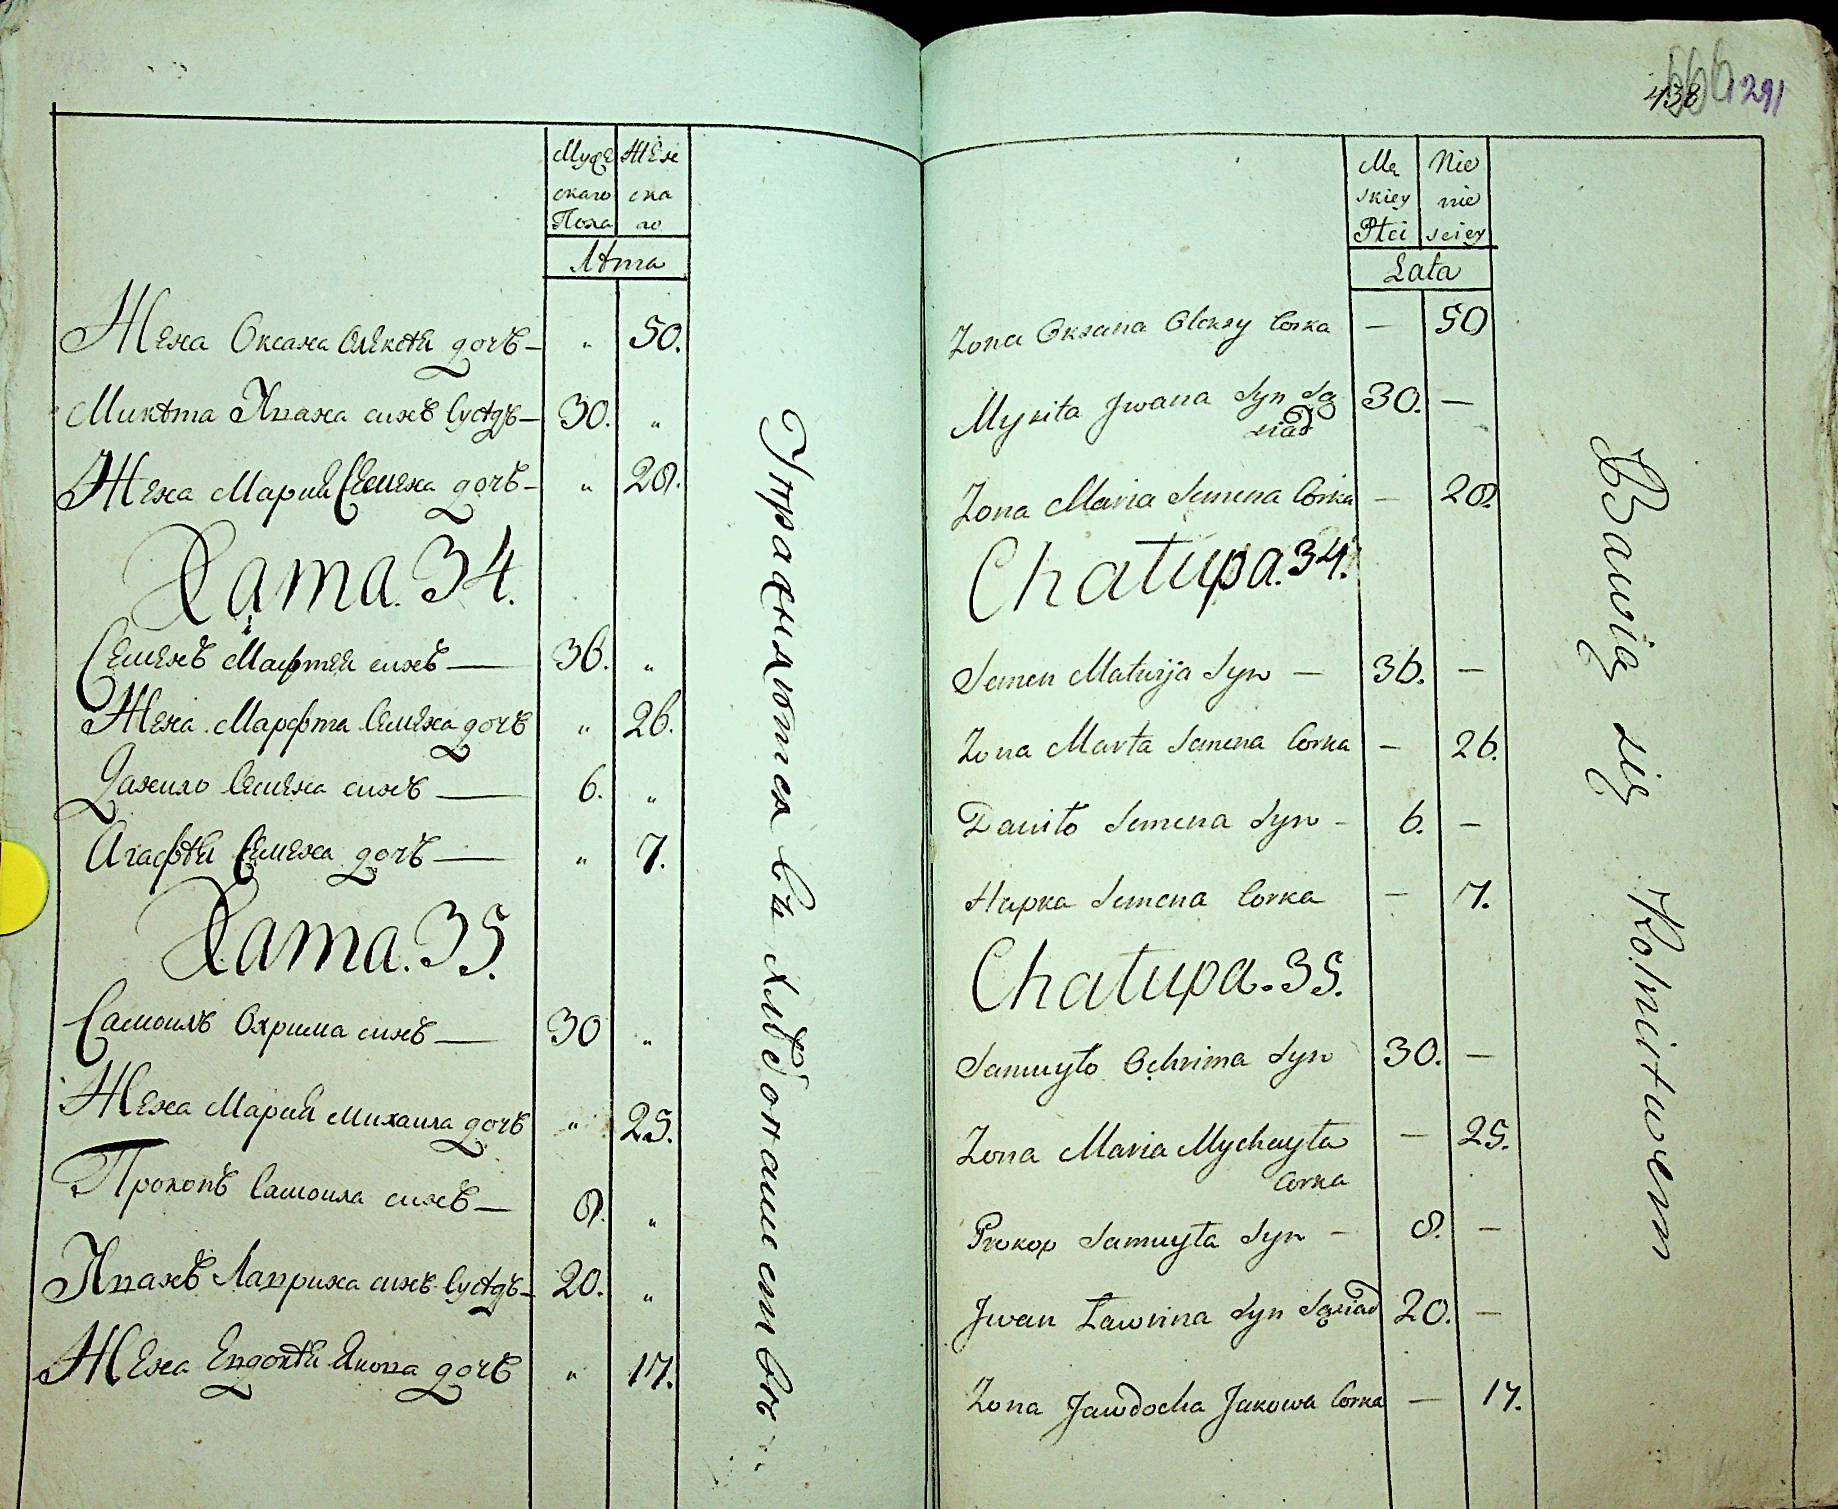 Муже Жен
скаго ска
Пола го
Лѣта
Жена Оксана Олексѣя дочь — " 50.
Микѣта Ивана синъ Сусѣдъ — 30. "
Жена Мария Семена дочь — " 28.
Хата. 34.
Семенъ Мафтея синъ — 36. "
Жена Марфта Семена дочь " 26.
Данило Семена синъ — 6. "
Агафѣя Семена дочь — " 7.
Хата. 35.
Самоилъ Охрима синъ — 30 "
Жена Мария Михаила дочь " 25.
Прокопъ Самоила синъ — 8. "
Иванъ Лаврина синъ Сусѣдъ — 20. "
Жена Евдокѣя Якова дочь " 17.
Упражняются въ хлѣбопашествѣ.
438 666 291
Mę Nie
skiey wie
Płci sciey
Lata
Zona Oksana Olexy Corka — 50
Mykita Jwana Syn Są 30. —
siad
Zona Maria Semena Corka — 28.
Chatupa. 34.
Semen Matwija Syn — 36. —
Zona Marta Semena Corka — 26.
Daniło Semena Syn — 6. —
Hapka Semena Corka — 7.
Chatupa. 35.
Samuyło Ochrima Syn 30. —
Zona Maria Mychayła — 25.
Corka
Prokop Samuyła Syn — 8. —
Jwan Ławrina Syn Sąsiad 20. —
Zona Jawdocha Jakowa Corka — 17.
Bawią się Rolnictwem